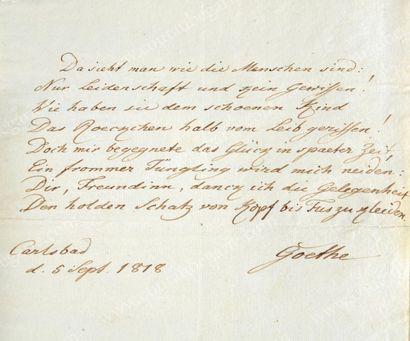 Da sieht man wie die Menschen sind:
Nur leidenschaft und kein Gewissen!
Wie haben sie dem schoenen Kind
Das Roeckchen halb vom leib gerissen!
Doch mir begegnete das Glück in spaeter Zeit,
Ein frommer Jüngling wird mich neiden:
Dir, Freundinn, danck ich die Gelegenheit
Den holden Schatz von Kopf bis Fus zu kleiden.
Carlsbad
d. 5 Sept. 1818
Goethe